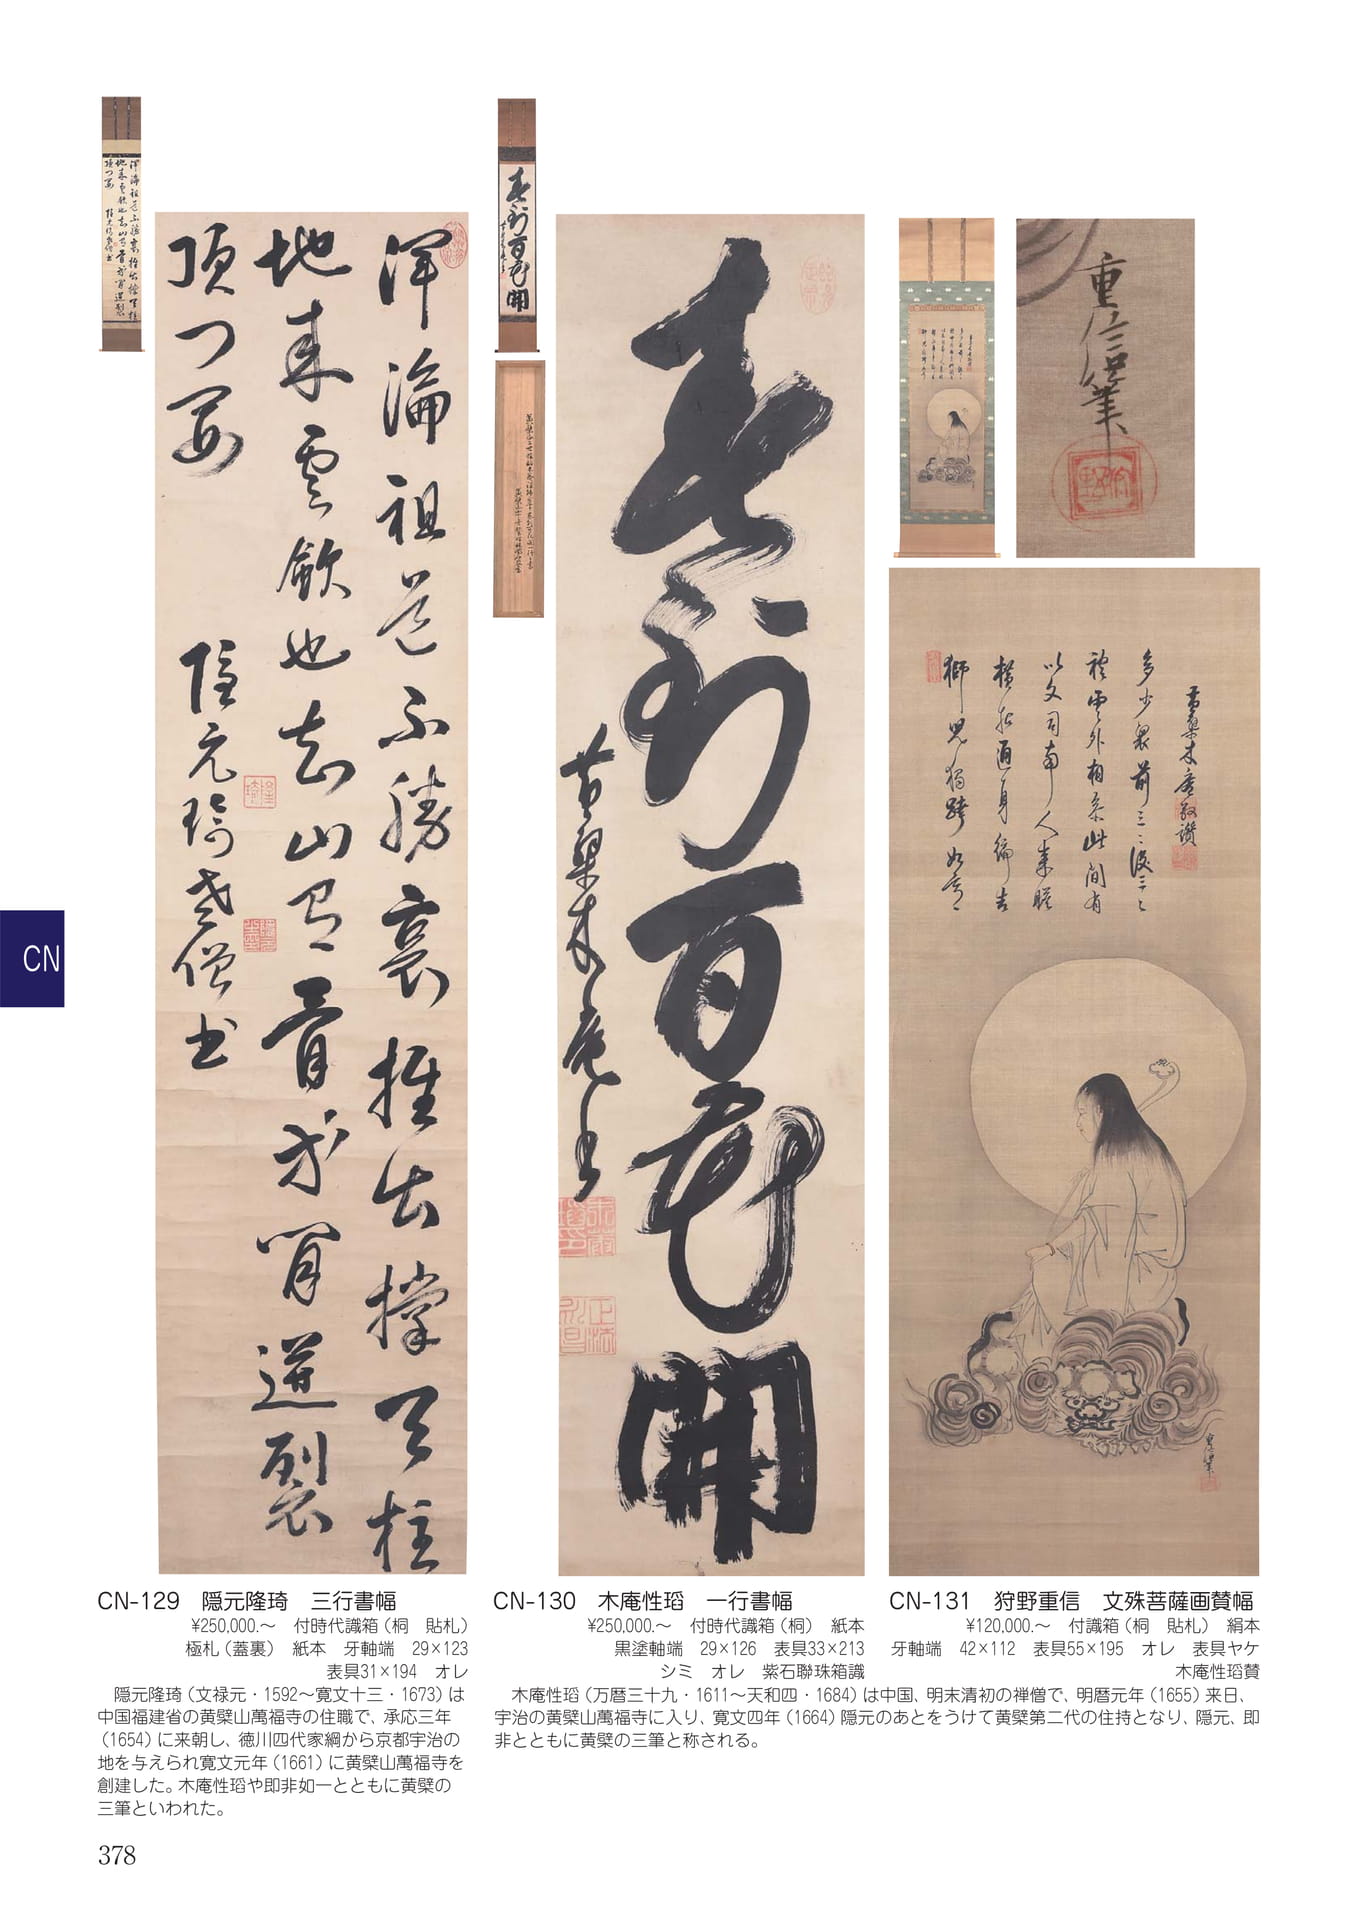 渾淪祖道不勝裏推出撐天柱
地来雲飲也去山
頂つ
隠元琦老僧書
春到百花開
黄檗木庵書
重信筆
黄檗木庵敬讃
多少衆前三三後三三
雲外相 此間有
以文司南人来
横 通身
獅児 踏
CN
CN-129 隠元隆琦 三行書幅
¥250,000.〜 付時代識箱（桐 貼札）
極札（蓋裏） 紙本 牙軸端 29×123
表具31×194 オレ
隠元隆琦（文禄元・1592〜寛文十三・1673）は
中国福建省の黄檗山萬福寺の住職で、承応三年
（1654）に来朝し、徳川四代家綱から京都宇治の
地を与えられ寛文元年（1661）に黄檗山萬福寺を
創建した。木庵性瑫や即非如一とともに黄檗の
三筆といわれた。
CN-130 木庵性瑫 一行書幅
¥250,000.〜 付時代識箱（桐） 紙本
黒塗軸端 29×126 表具33×213
シミ オレ 紫石聯珠箱識
CN-131 狩野重信 文殊菩薩画賛幅
¥120,000.〜 付識箱（桐 貼札） 絹本
牙軸端 42×112 表具55×195 オレ 表具ヤケ
木庵性瑫賛
木庵性瑫（万暦三十九・1611〜天和四・1684）は中国、明末清初の禅僧で、明暦元年（1655）来日、
宇治の黄檗山萬福寺に入り、寛文四年（1664）隠元のあとをうけて黄檗第二代の住持となり、隠元、即
非とともに黄檗の三筆と称される。
378